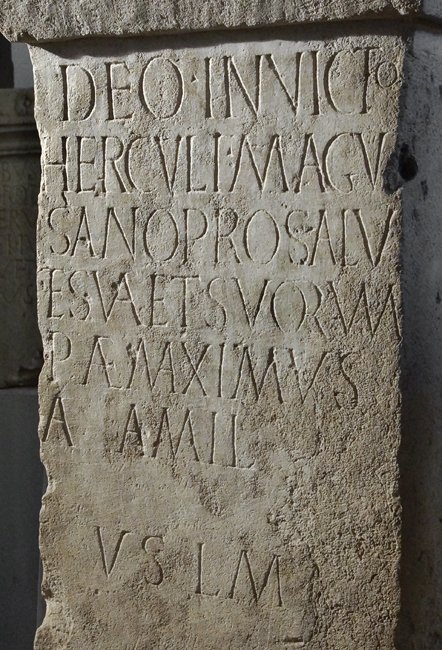 DEO·INVICTO
HERCVLI·MAGV
SANO PRO SALV
TE SVA ET SVORVM
P AE MAXIMVS
A A MIL
V S L M